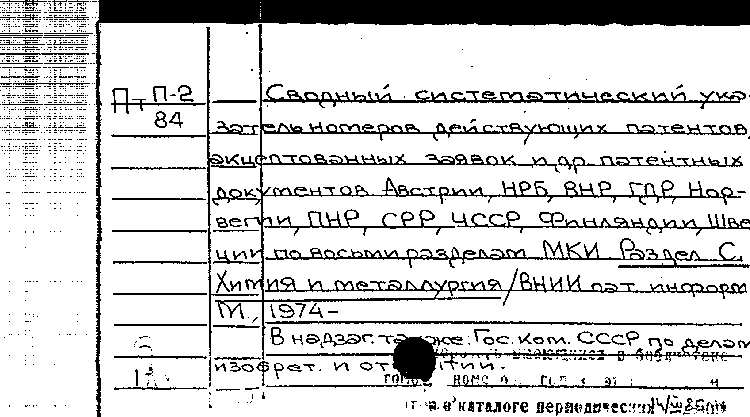 Пт П-2
84
Сводный систематический ука-
затель номеров действующих патентов,
акцептованных заявок и др. патентных
документов Австрии, НРБ, ВНР, ГДР, Нор-
вегии, ПНР, СРР, ЧССР, Финляндии, Шве
ции по восьми разделам МКИ Раздел С.
Химия и металлургия / ВНИИ пат. информ
М., 1974 –
В надзаг. также: Гос. ком. СССР по делам
изобрет. и открытий.
в библиотеке
в каталоге периодических